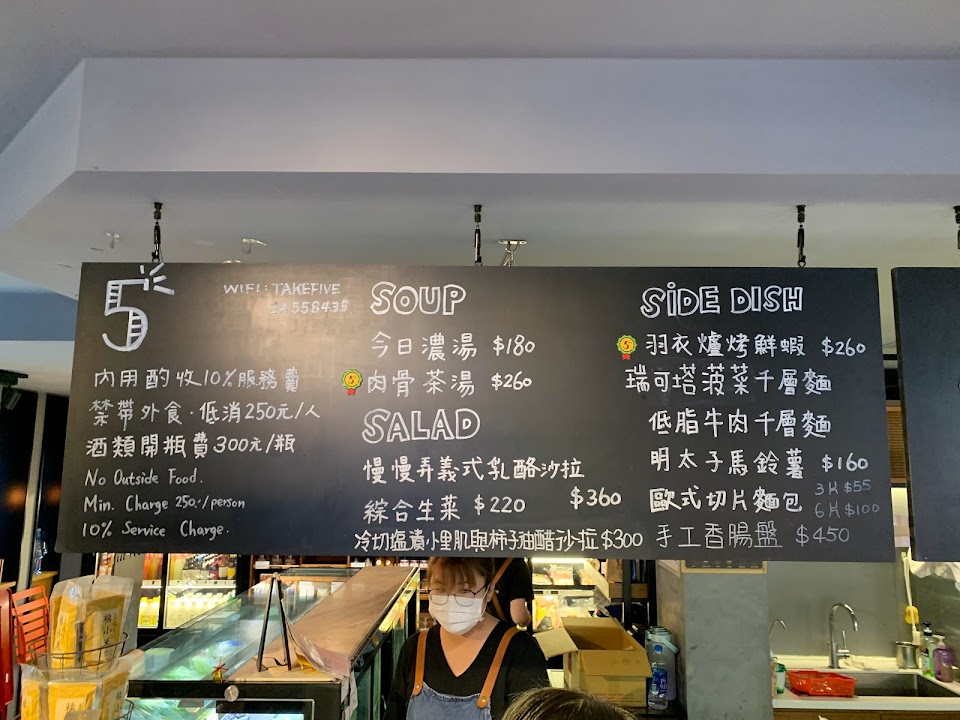 5
WIFI: TAKEFIVE
內用酌收10%服務費
禁帶外食·低消250元/人
酒類開瓶費300元/瓶
No Outside Food.
Min. Charge 250.-/person
10% Service Charge.
SOUP
今日濃湯 $180
肉骨茶湯 $260
SALAD
慢慢弄義式乳酪沙拉 $360
綜合生菜 $220
冷切鹽漬小里肌與柿子油醋沙拉 $300
SIDE DISH
羽衣爐烤鮮蝦 $260
瑞可塔菠菜千層麵
低脂牛肉千層麵
明太子馬鈴薯 $160
歐式切片麵包 3片 $55
6片 $100
手工香腸盤 $450